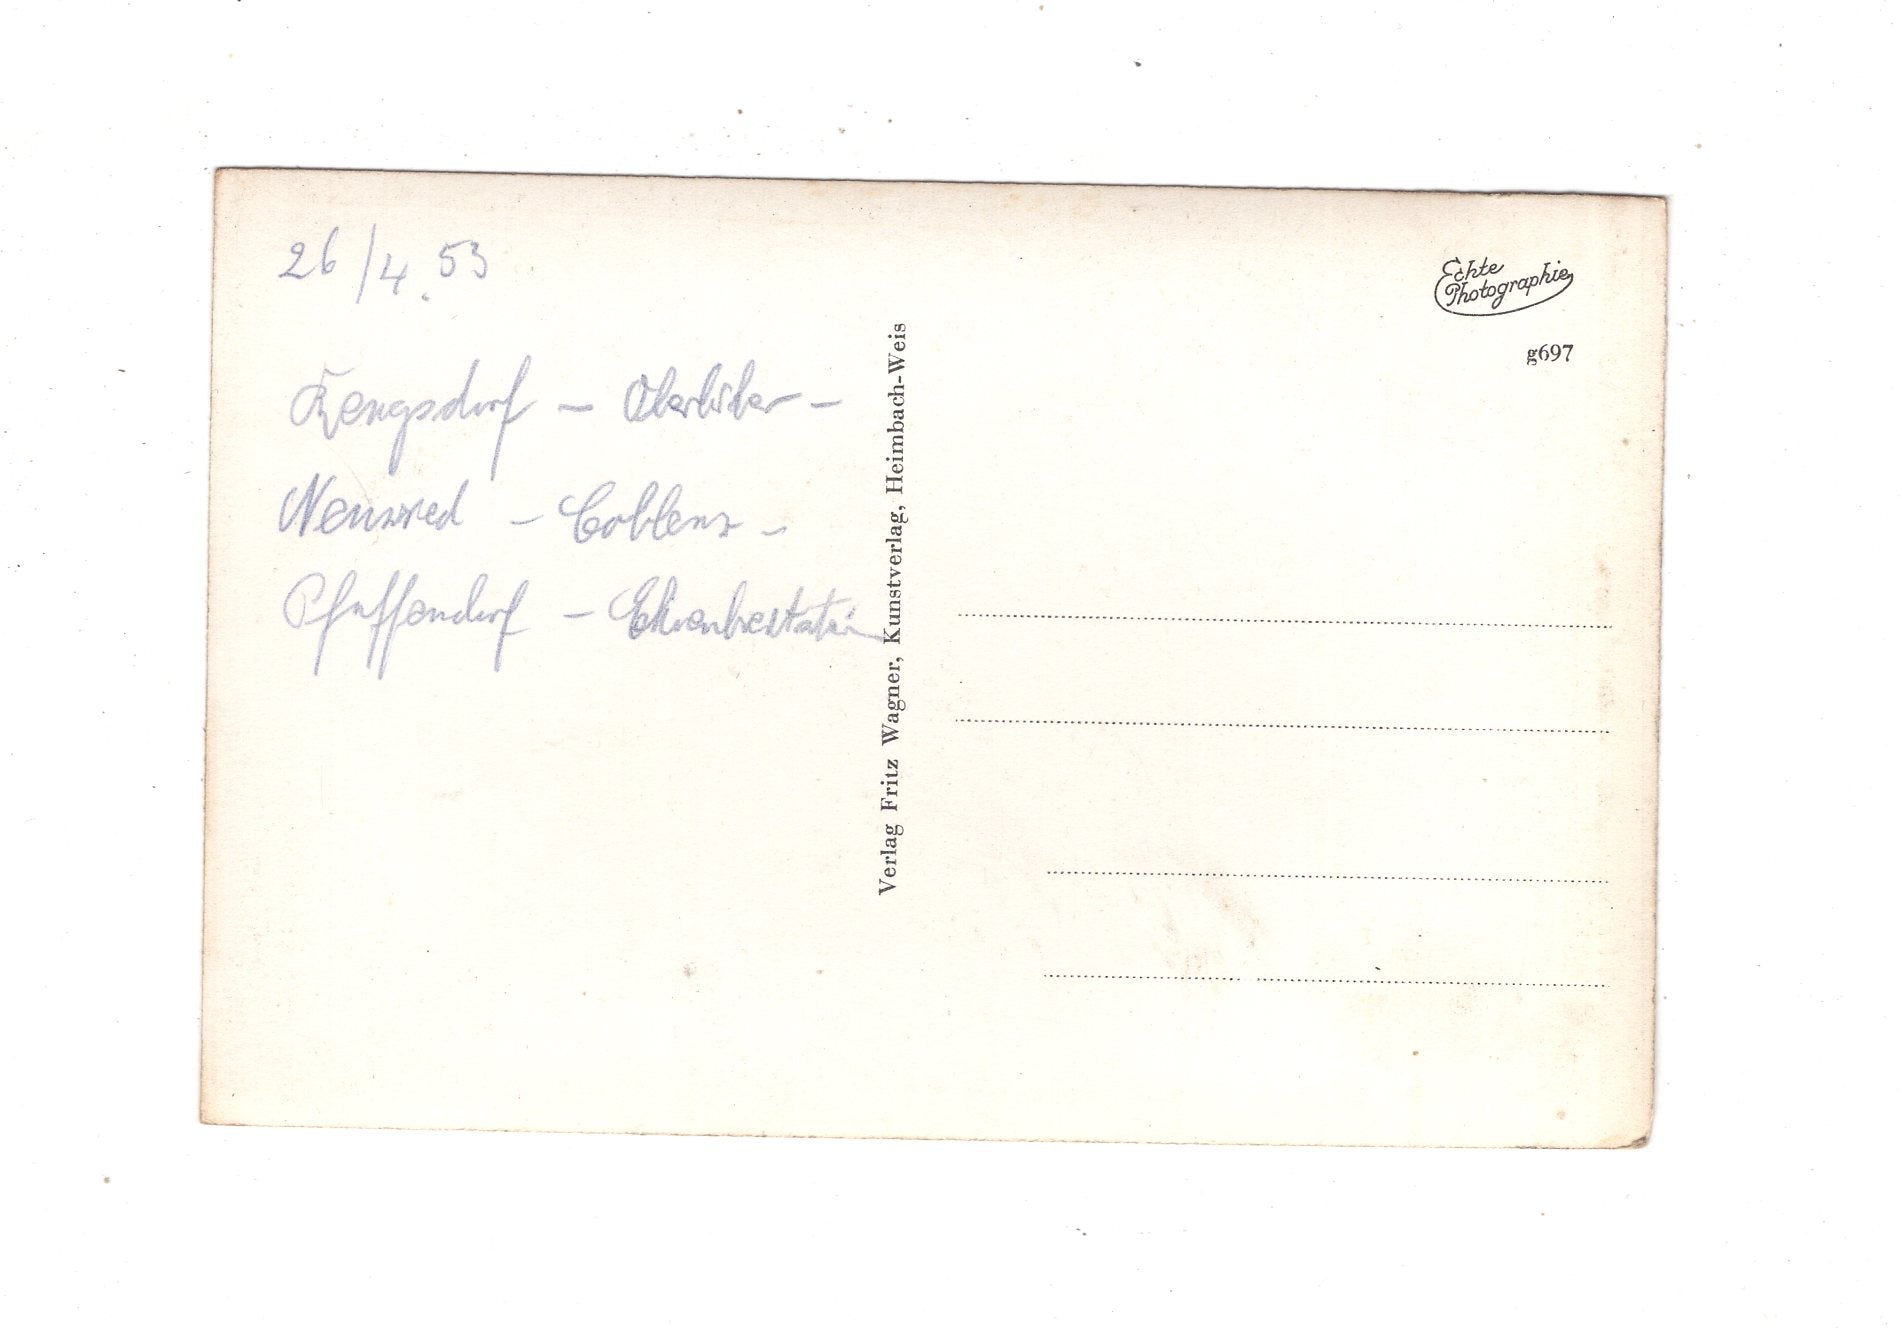 26/4.53
Rengsdorf – Oberbieber –
Neuwied – Coblenz –
Pfaffendorf – Ehrenbreitstein
Verlag Fritz Wagner, Kunstverlag, Heimbach-Weis
Echte
Photographie
g697